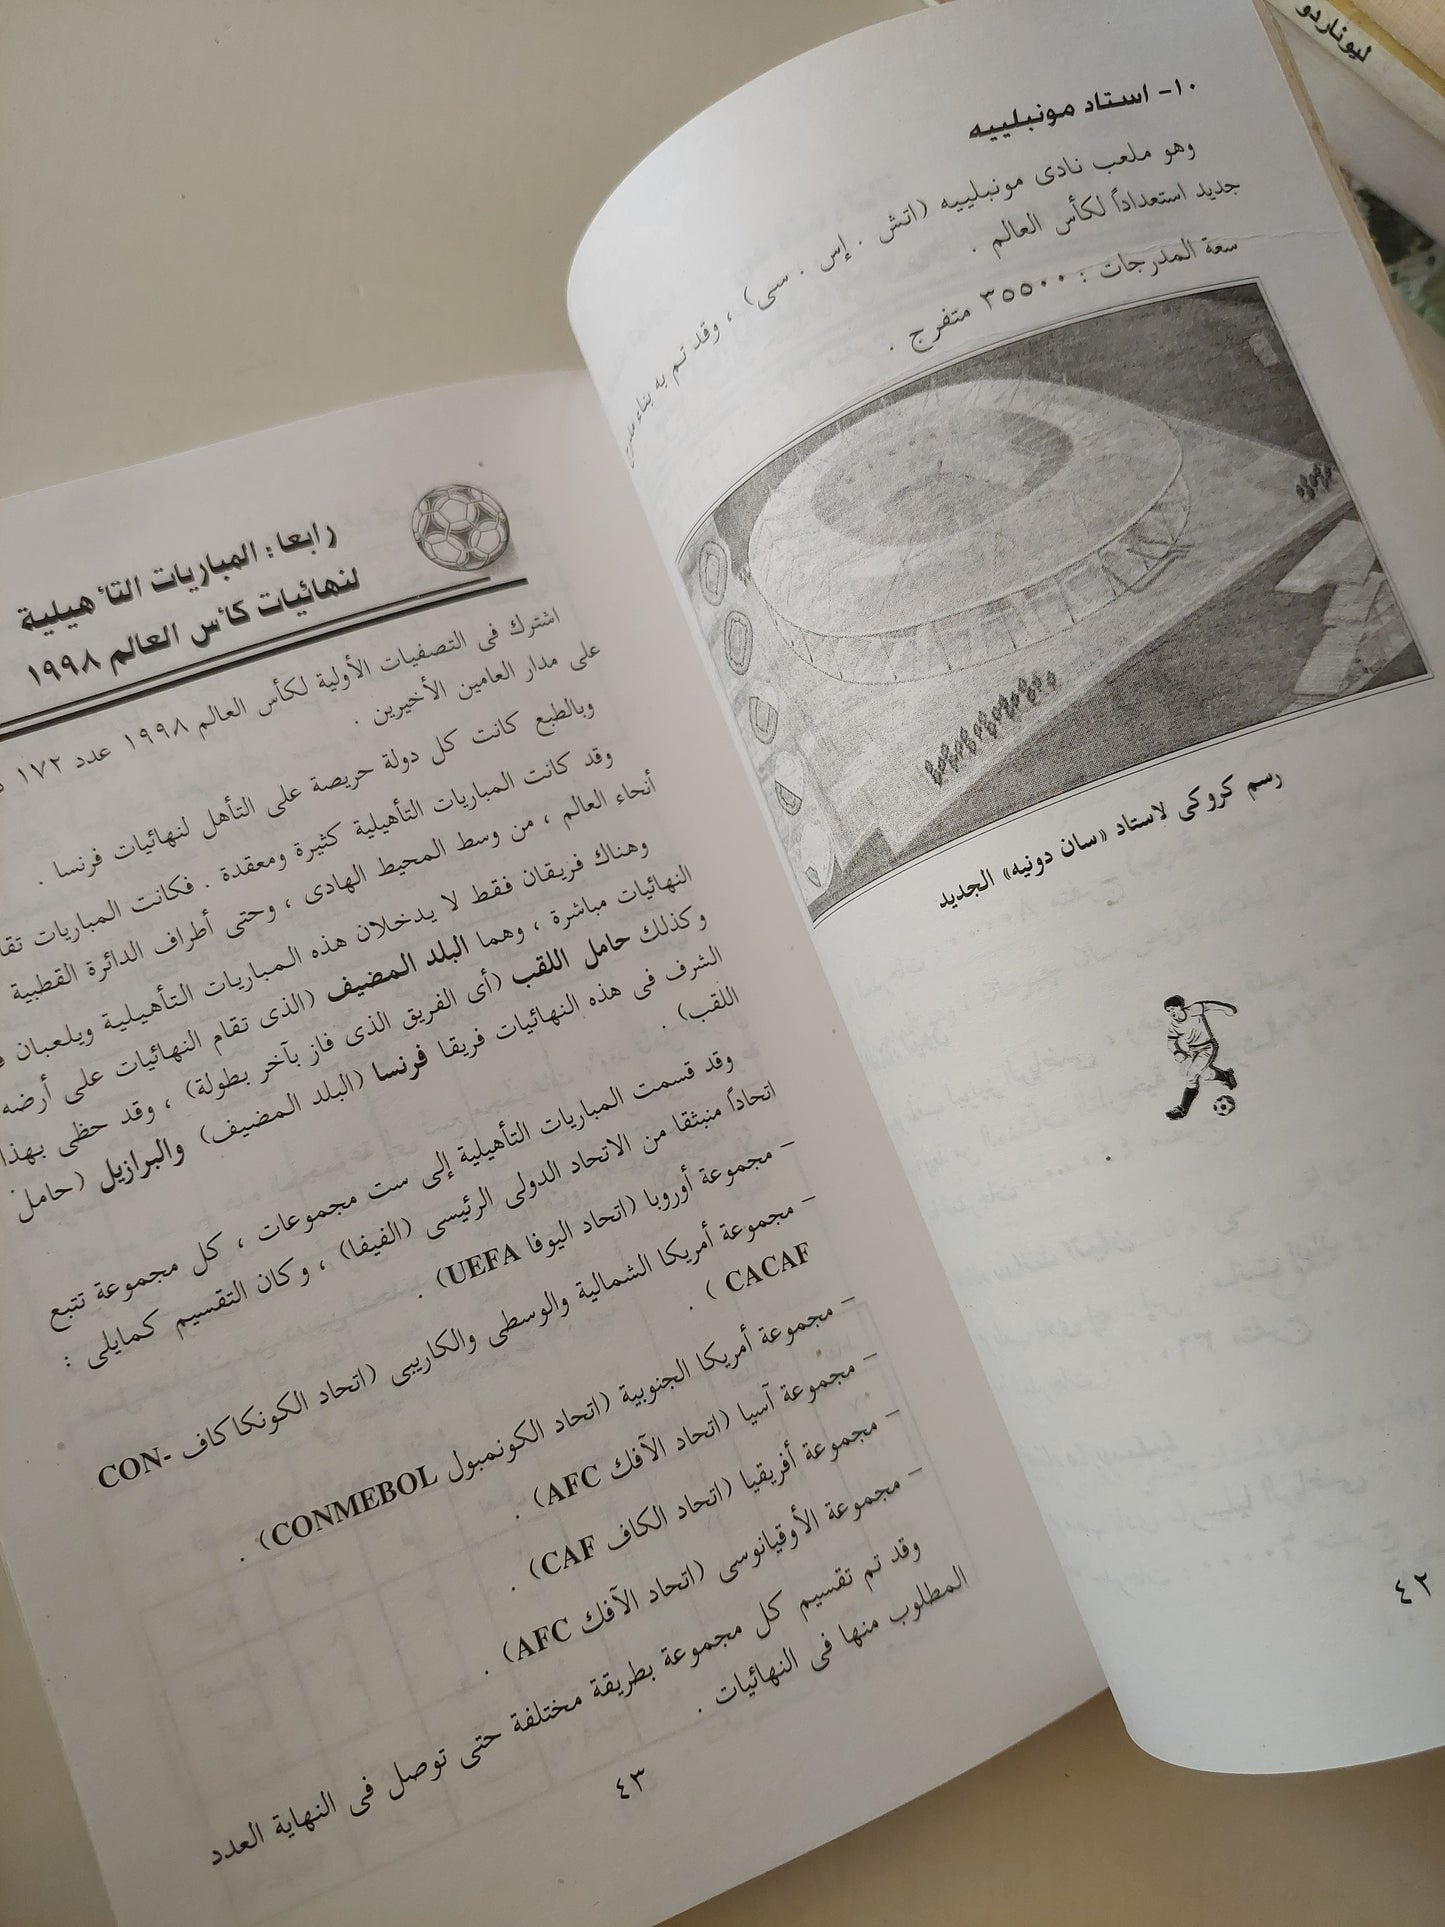 ليوناردو
١٠- استاد مونبلييه
وهو ملعب نادى مونبلييه (اتش . إس . سى) ، وقد تم به بناء مدرج
جديد استعداداً لكأس العالم .
سعة المدرجات : ٣٥٥٠٠ متفرج .
رسم كروكى لاستاد «سان دونيه» الجديد
٤٢
رابعا: المباريات التأهيلية
لنهائيات كأس العالم ١٩٩٨
اشترك فى التصفيات الأولية لكأس العالم ١٩٩٨ عدد ١٧٢
على مدار العامين الأخيرين .
وبالطبع كانت كل دولة حريصة على التأهل لنهائيات فرنسا .
وقد كانت المباريات التأهيلية كثيرة ومعقدة . فكانت المباريات
أنحاء العالم ، من وسط المحيط الهادى ، وحتى أطراف الدائرة القطبية
وهناك فريقان فقط لا يدخلان هذه المباريات التأهيلية ويلعبان
النهائيات مباشرة ، وهما البلد المضيف (الذى تقام النهائيات على أرضه
وكذلك حامل اللقب (أى الفريق الذى فاز بآخر بطولة) ، وقد حظى بهذا
الشرف فى هذه النهائيات فريقا فرنسا (البلد المضيف) والبرازيل (حامل
اللقب) .
وقد قسمت المباريات التأهيلية إلى ست مجموعات ، كل مجموعة تتبع
اتحاداً منبثقا من الاتحاد الدولى الرئيسى (الفيفا) ، وكان التقسيم كمايلى :
– مجموعة أوروبا (اتحاد اليوفا UEFA) .
– مجموعة أمريكا الشمالية والوسطى والكاريبى (اتحاد الكونكاكاف CON-
CACAF ) .
– مجموعة أمريكا الجنوبية (اتحاد الكونمبول CONMEBOL) .
– مجموعة آسيا (اتحاد الآفك AFC) .
– مجموعة أفريقيا (اتحاد الكاف CAF) .
– مجموعة الأوقيانوسى (اتحاد الآفك AFC) .
وقد تم تقسيم كل مجموعة بطريقة مختلفة حتى توصل فى النهاية العدد
المطلوب منها فى النهائيات .
٤٣